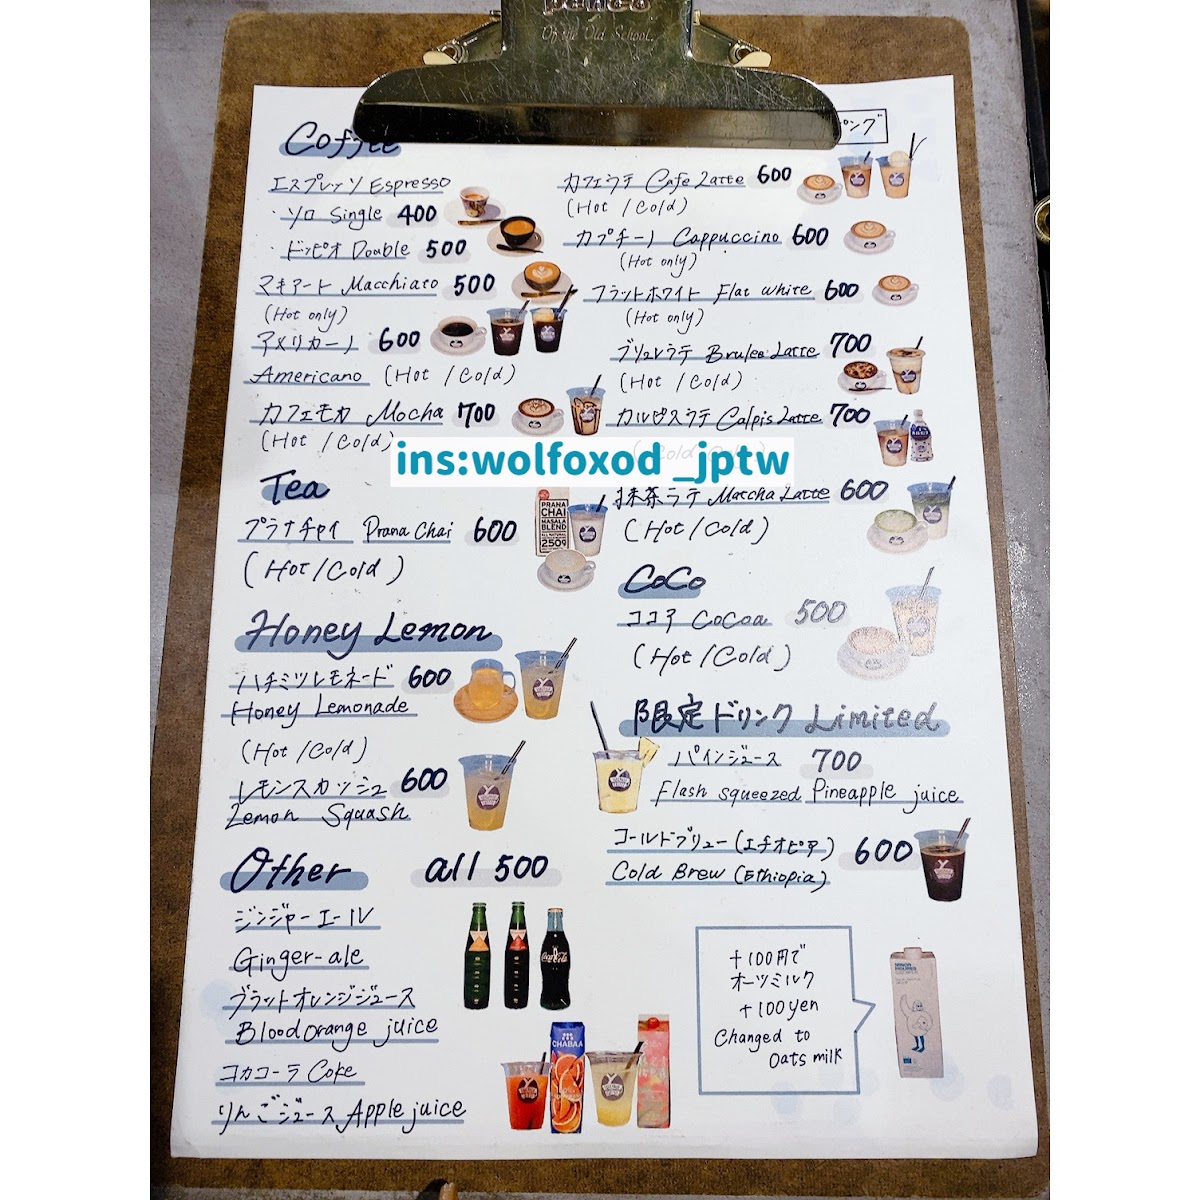 Of the Old School.
ピング
Coffee
エスプレッソ Espresso
・ソロ Single 400
・ドッピオ Double 500
マキアート Macchiato 500
(Hot only)
アメリカーノ 600
Americano (Hot / Cold)
カフェモカ Mocha 700
(Hot / Cold)
カフェラテ Cafe Latte 600
(Hot / Cold)
カプチーノ Cappuccino 600
(Hot only)
フラットホワイト Flat white 600
(Hot only)
ブリュレラテ Brulee Latte 700
(Hot / Cold)
カルピスラテ Calpis Latte 700
ins:wolfoxod _jptw
抹茶ラテ Matcha Latte 600
(Hot / Cold)
Tea
プラナチャイ Prana Chai 600
(Hot / Cold)
PRANA
CHAI
MASALA
BLEND
250g
CoCo
ココア CoCoa 500
(Hot / Cold)
Honey Lemon
ハチミツレモネード 600
Honey Lemonade
(Hot / Cold)
レモンスカッシュ 600
Lemon Squash
限定ドリンク Limited
パインジュース 700
Flash squeezed Pineapple juice
コールドブリュー (エチオピア) 600
Cold Brew (Ethiopia)
Other all 500
ジンジャーエール
Ginger-ale
ブラットオレンジジュース
Blood orange juice
コカコーラ Coke
りんごジュース Apple juice
Coca-Cola
CHABAA
+100円で
オーツミルク
+100yen
Changed to
Oats milk
MINOR
FIGURES